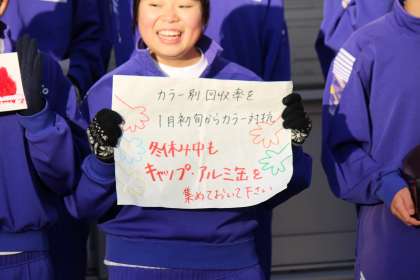 カラー別回収率を
1月初旬からカラー対抗
冬休み中も
キャップ・アルミ缶を
集めておいて下さい